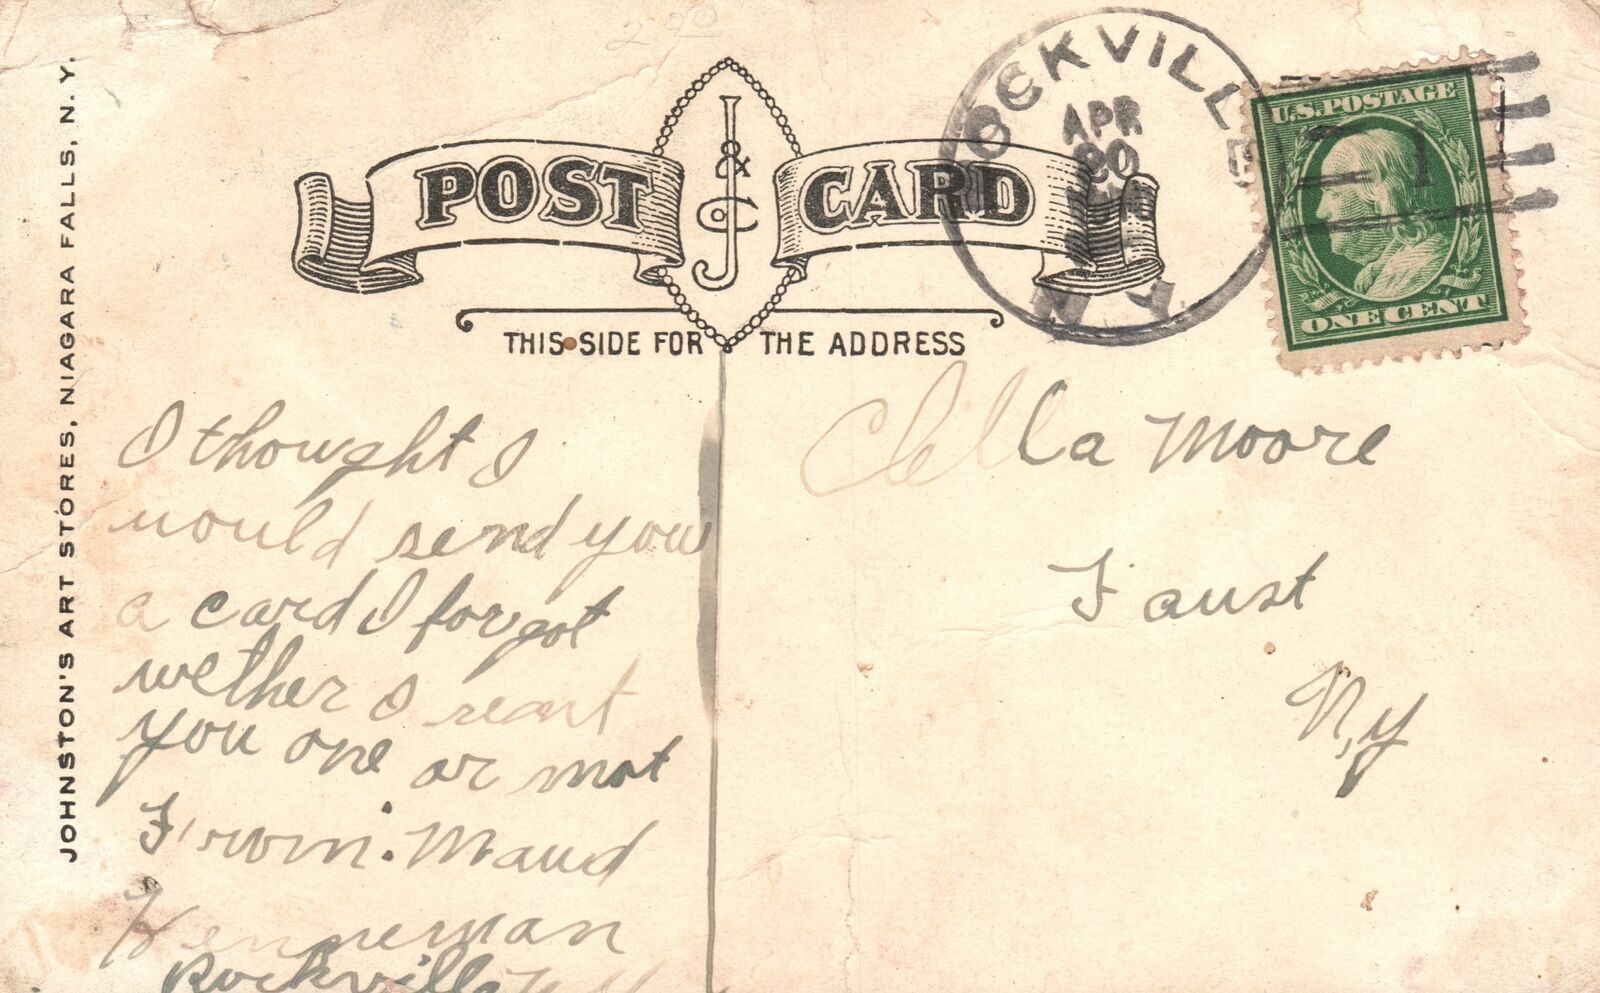 JOHNSTON'S ART STORES, NIAGARA FALLS, N. Y.
POST J & Co CARD
THIS SIDE FOR THE ADDRESS
ROCKVILLE
APR
20
N.Y.
U.S. POSTAGE
ONE CENT
I thought I
would send you
a card I forgot
wether I seant
you one or mot
From. Maud
Kenneman
Rockville
Ella Moore
Faust
N,y